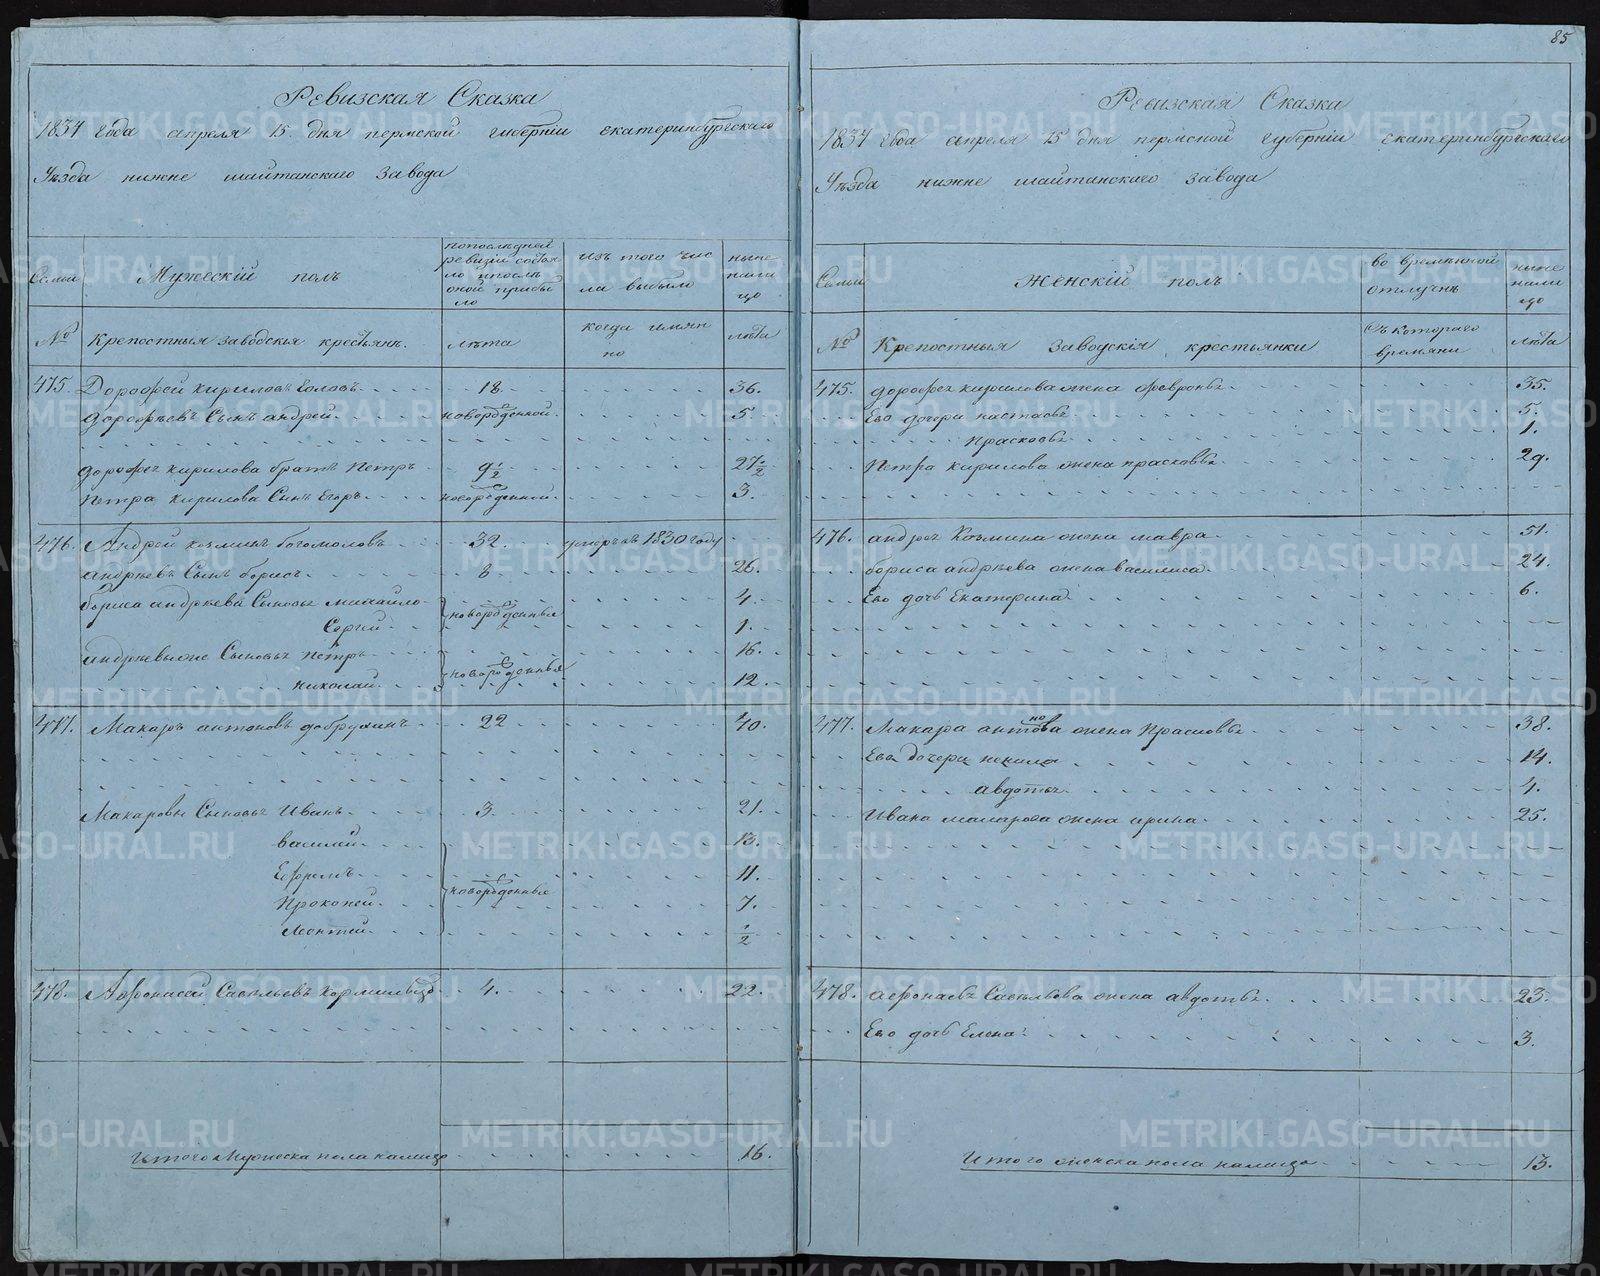 85
Ревизская Сказка
1834 Года апреля 15 дня пермской губерніи екатеринбургскаго
Уѣзда нижне шайтанскаго завода
Семьи
Мужескій полъ
попоследней ревизіи состоя ло ипослѣ оной прибы ло
изъ того чис ла выбыло
ныне нали цо
№
Крепостныя заводскія крестьянъ.
лѣта
когда имян но
лѣта
475. Дорофей кириловъ 18. 36.
дорофѣевъ Сынъ андрей новорожденной. 5
дорофея кирилова братъ Петръ 9 1/2 27 1/2
Петра кирилова Сынъ Егоръ новорожденной. 3.
476. Андрей козминъ богомоловъ 32. умеръ въ 1830 году
андрѣевъ Сынъ борисъ 8 26.
бориса андрѣева Сыновья михайло новорожденныя 4.
Сергей 1.
андрѣевыже Сыновья Петръ новорожденныя 16.
николай 12.
477. Макаръ антоновъ 22 40.
Макаровы Сыновья Иванъ 3. 21.
василий 13.
Ефремъ новорожденныя 11.
Прокопей 7.
Мантей 1/2
478. Афонасей Савельевъ 4. 22.
Итого Мужеска пола налицо 16.
Ревизская Сказка
1834 Года апреля 15 дня пермской губерніи екатеринбургскаго
Уѣзда нижне шайтанскаго завода
Семьи
Женскій полъ
во временной отлучкѣ
ныне нали цо
№
Крепостныя заводскія крестьянки
Съ котораго времяни
лѣта
475. дорофея кирилова жена февронья 35.
Ево дочери настасья 5.
Прасковья 1.
Петра кирилова жена прасковья 29.
476. андрея Козмина жена мавра 51.
бориса андрѣева жена василиса 24.
Ево дочь Екатерина 6.
477. Макара антонова жена Прасковья 38.
Ева дочери ненила 14.
авдотья 4.
Ивана макарова жена ирина 25.
478. афонасья Савельева жена авдотья 23.
Ево дочь Елена 3.
Итого женска пола налицо 13.
METRIKI.GASO-URAL.RU